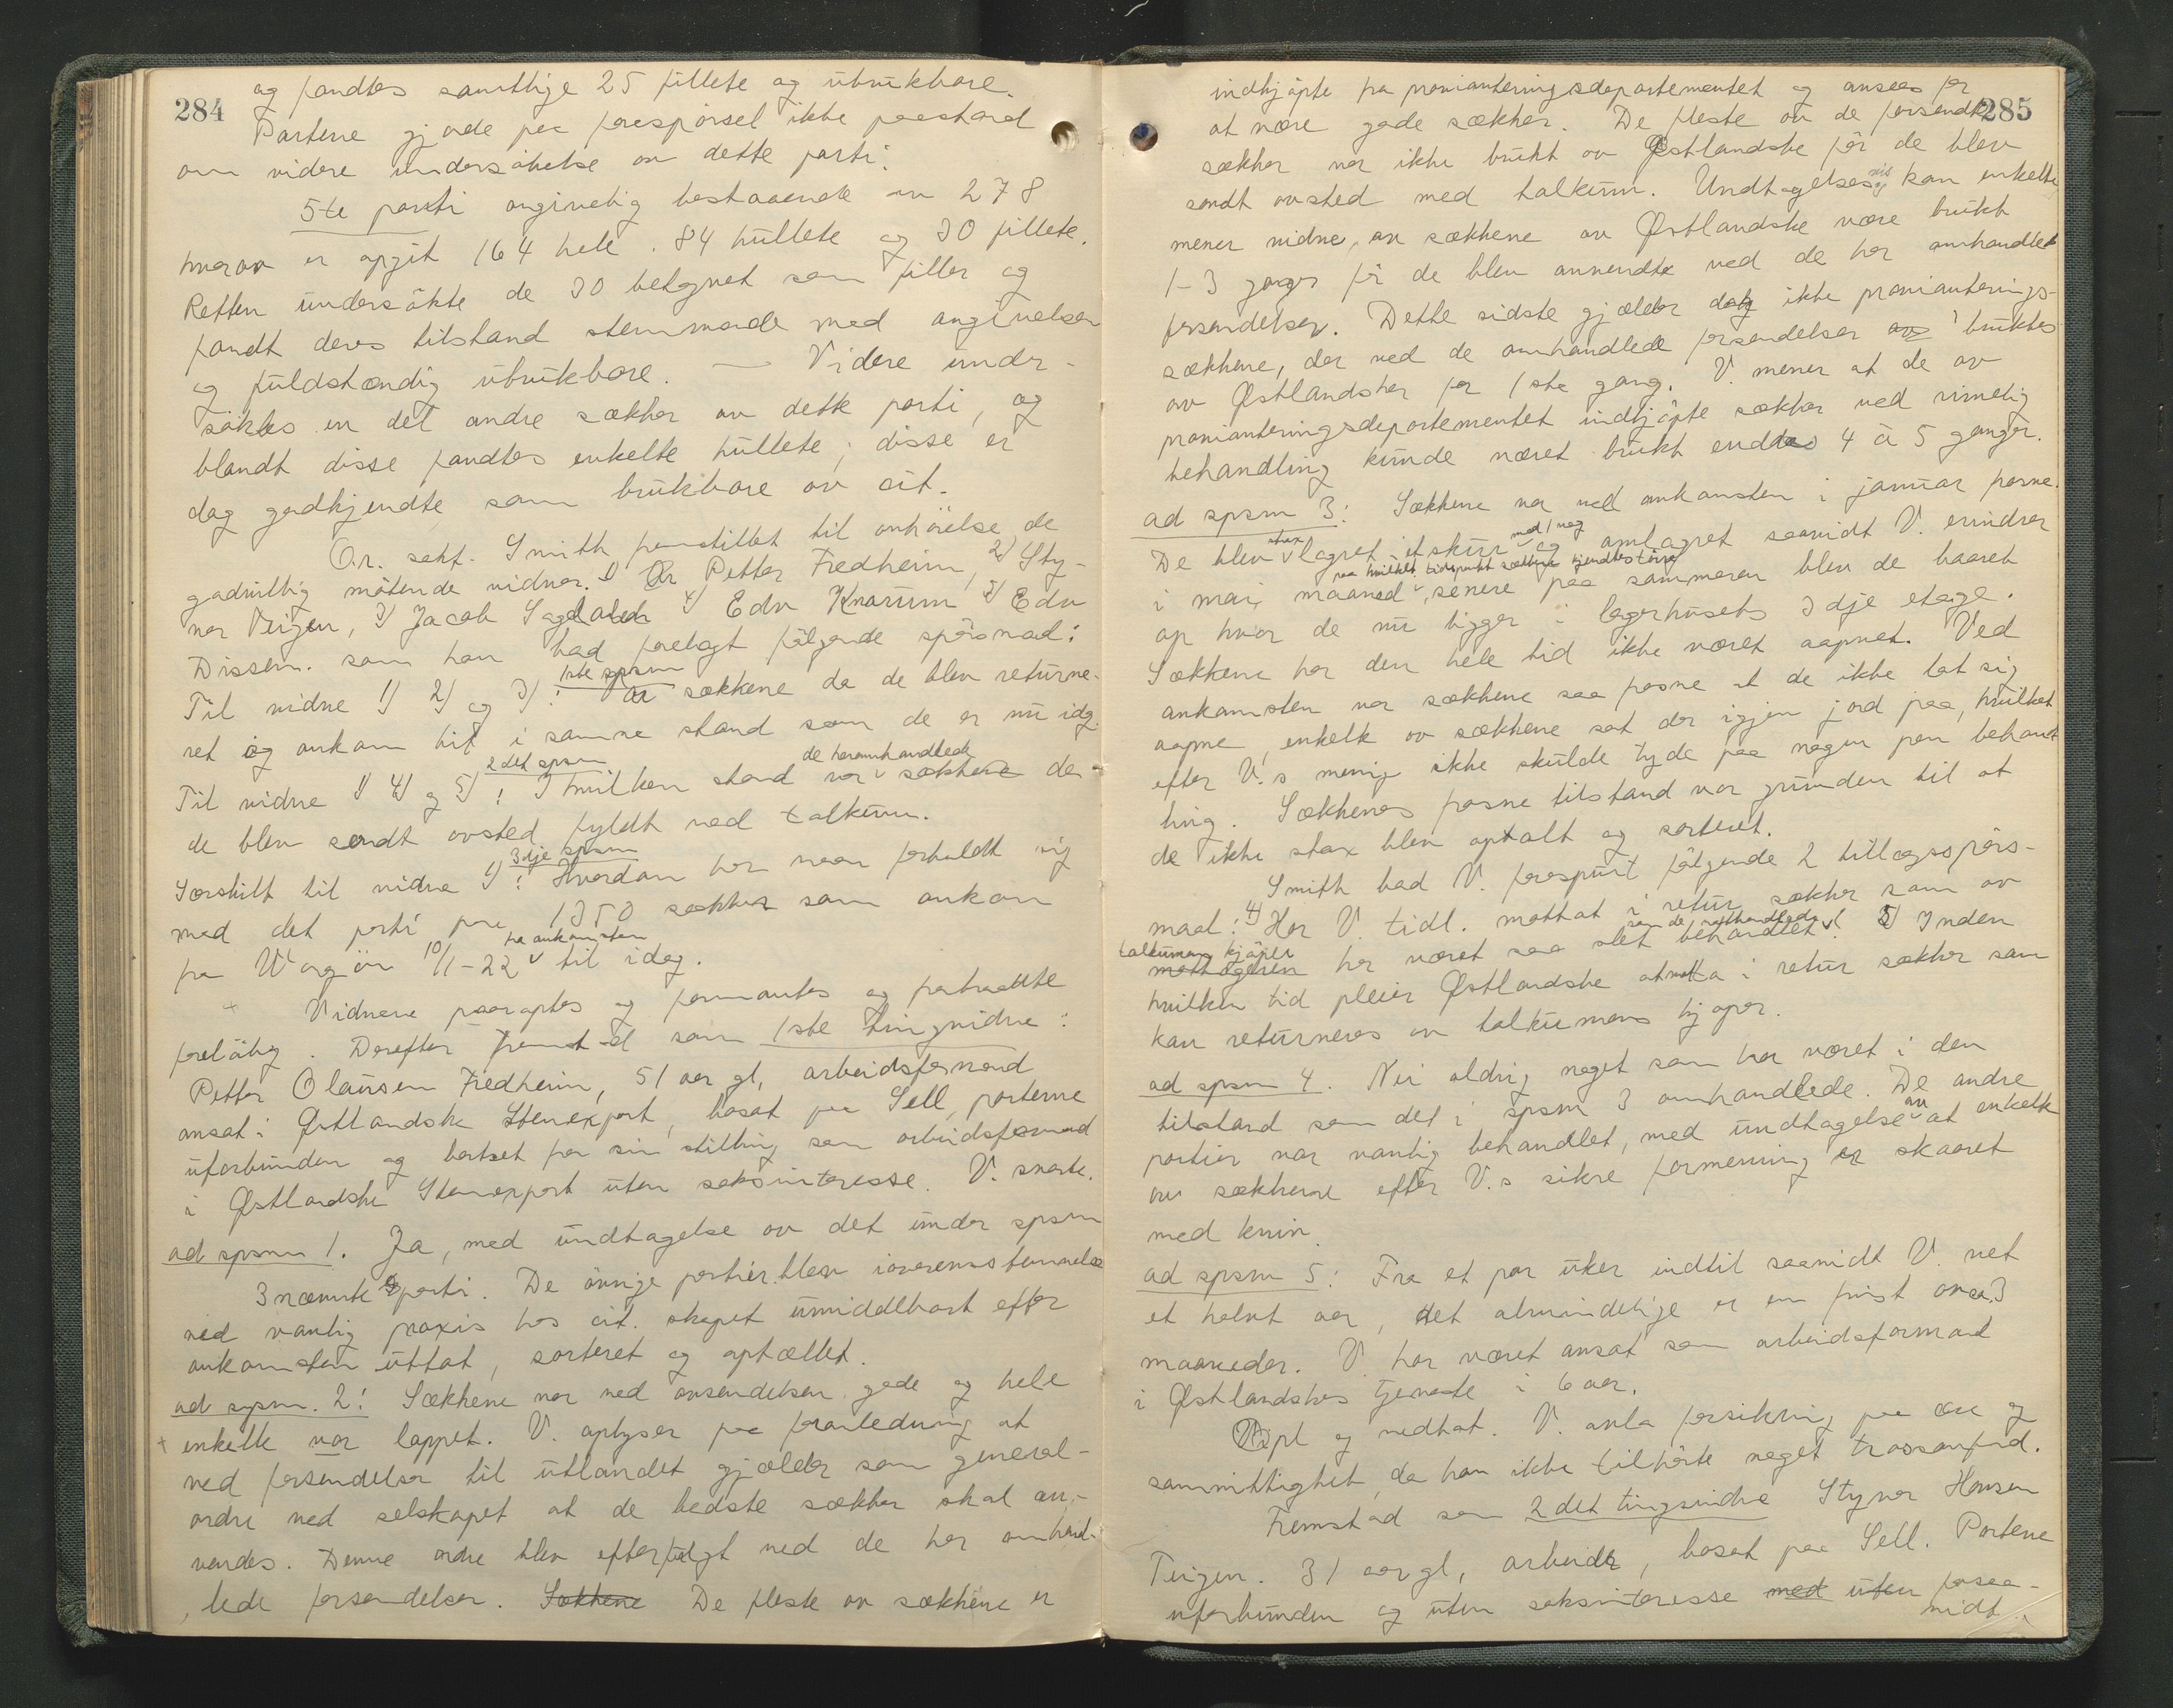 284
og fandtes samtlige 25 fillete og ubrukbare.
Parterne gjorde paa forespörsel ikke paastand
om videre undersökelse av dette parti.
5te parti angivelig bestaaende av 278
hvorav er opgit 164 hele, 84 hullete og 30 fillete.
Retten undersökte de 30 betegnet som filler og
fandt deres tilstand stemmende med angivelsen
og fuldstændig ubrukbare. — Videre under-
söktes en del andre sækker av dette parti, og
blandt disse fandtes enkelte hullete; disse er
dog godkjendte som brukbare av cit.
O.r. sakf. Smith fremstillet til avhörelse de
godvillig mötende vidner. 1) Petter Fredheim, 2) Sty-
ver Teigen, 3) Jacob Sagdalen 4) Edv Knarum 5) Edv
Dissen. som han bad forelagt fölgende spörsmaal:
Til vidne 1) 2) og 3): 1ste spsm Er sækkene da de blev returne-
ret og ankom hit i samme stand som de er nu idag.
Til vidne 1) 4) og 5): 2det spsm I hvilken stand var de heromhandlede sækkene da
de blev sendt avsted fyldt med talkum.
Særskilt til vidne 1): 3dje spsm Hvordan har man forholdt sig
med det parti paa 1353 sækker som ankom
fra Wargön 10/11-22 fra ankomsten til idag.
Vidnene paaroptes og formantes og fratraadte
foreløbig. Derefter fremstod som 1ste tingvidne:
Petter Olausen Fredheim, 51 aar gl, arbeidsformand
ansat i Østlandske Stenexport, bosat paa Sell, parterne
uforbunden og bortset fra sin stilling som arbeidsformand
i Østlandske Stenexport uten saksinteresse. V. svarte.
ad spsm 1. Ja, med undtagelse av det under spsm
3 nævnte parti. De övrige partier blev i overensstemmelse
med vanlig praxis hos cit. skapet umiddelbart efter
ankomsten uttat, sorteret og optællet.
ad spsm. 2: Sækkene var ved avsendelsen gode og hele
enkelte var lappet. V. oplyser paa foranledning at
ved forsendelser til utlandet gjælder som general-
ordre ved selskapet at de bedste sækker skal an-
vendes. Denne ordre blev efterfulgt ved de her omhand-
lede forsendelser. Sækkene De fleste av sækkene er
285
indkjöpte fra provianteringsdepartementet og ansees for
at være gode sækker. De fleste av de forsendte
sækker var ikke brukt av Østlandske för de blev
sendt avsted med talkum. Undtagelsesvis kan enkelte
mener vidne, av sækkene av Østlandske være brukt
1-3 ganger för de blev anvendte ved de her omhandlede
forsendelser. Dette sidste gjælder dog ikke provianterings-
sækkene, der ved de omhandlede forsendelser bruktes
av Østlandske for 1ste gang. V. mener at de av
provianteringsdepartementet indkjöpte sækker ved rimelig
behandling kunde været brukt endda 4 à 5 ganger.
ad spsm 3: Sækkene var ved ankomsten i januar frosne.
De blev strax lagret i et skur og omlagret saavidt V. erindrer
i mai maaned paa hvilket tidspunkt sækkene kjendtes törre, senere paa sommeren blev de baaret
op hvor de nu ligger i lagerhusets 3dje etage.
Sækkene har den hele tid ikke været aapnet. Ved
ankomsten var sækkene saa frosne at de ikke lot sig
aapne, enkelte av sækkene sat der igjen jord paa, hvilket
efter V.s mening ikke skulde tyde paa nogen pen behand-
ling. Sækkenes frosne tilstand var grunden til at
de ikke strax blev optalt og sorteret.
Smith bad V. forespurt fölgende 2 tillægsspörs-
maal: 4) Har V. tidl. mottat i retur sækker som av
talkumens kjöper mottageren har været saa slet behandlet som de omhandlede? 5) Inden
hvilken tid pleier Østlandske at motta i retur sækker som
kan returneres av talkumens kjöper.
ad spsm 4. Nei aldrig noget som har været i den
tilstand som det i spsm 3 omhandlede. De andre
partier var vanlig behandlet, med undtagelse av at enkelte
av sækkerne efter V.s sikre formening er skaaret
med kniv.
ad spsm 5: Fra et par uker indtil saavidt V. vet
et halvt aar, det almindelige er en frist av ca. 3
maaneder. V. har været ansat som arbeidsformand
i Østlandskes tjeneste i 6 aar.
Opl og vedtat. V. avla forsikring paa ære og
samvittighet, da han ikke tilhörte noget trossamfund.
Fremstod som 2det tingvidne Styver Hansen
Teigen. 31 aar gl, arbeider, bosat paa Sell. Partene
uforbunden og uten saksinteresse med uten forsaa-
vidt.